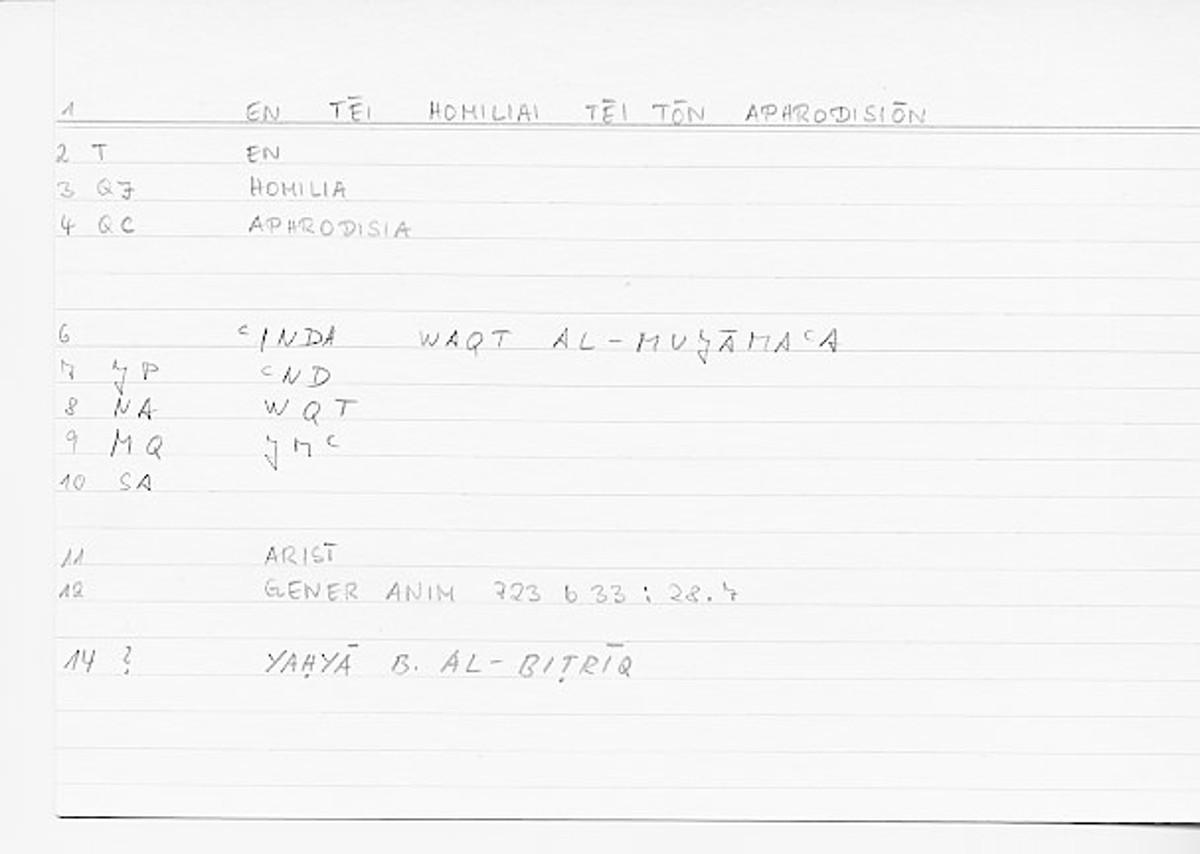 1 EN TĒI HOMILIAI TĒI TŌN APHRODISIŌN
2 T EN
3 QJ HOMILIA
4 QC APHRODISIA
6 ᶜINDA WAQT AL-MUJĀMAᶜA
7 JP ᶜND
8 NA WQT
9 MQ JMᶜ
10 SA
11 ARIST
12 GENER ANIM 723 b 33 : 28.7
14 ? YAḤYĀ B. AL-BIṬRĪQ